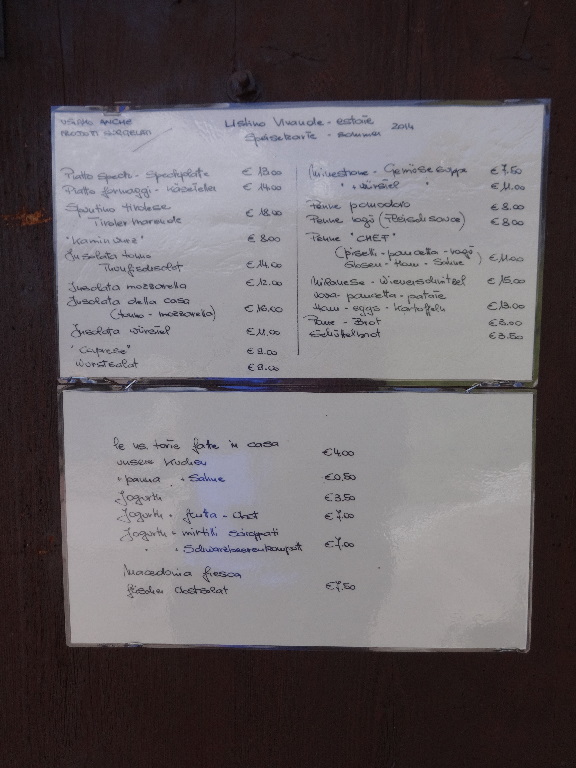 USIAMO ANCHE
PRODOTTI SURGELATI
Listino Vivande - estate
Speisekarte - Sommer 2014
Piatto speck - Speckplatte € 13.00
Piatto formaggi - Käseteller € 14.00
Spuntino tirolese
Tiroler marende € 18.00
"Kaminwurz" € 8.00
Insalata tonno
Thunfischsalat € 14.00
Insalata mozzarella € 12.00
Insalata della casa
(tonno - mozzarella) € 16.00
Insalata würstel € 11.00
"Caprese" € 9.00
Wurstsalat € 9.00
Minestrone - Gemüsesuppe € 7.50
" + würstel " € 11.00
Penne pomodoro € 8.00
Penne ragù (Fleischsauce) € 8.00
Penne "CHEF"
(piselli - pancetta - ragù
Erbsen - Ham - Sahne) € 11.00
Milanese - Wienerschnitzel € 15.00
Uova pancetta - patate
Ham - eggs - Kartoffeln € 13.00
Pane - Brot € 3.00
Schüttelbrot € 3.50
Le ns. torte fatte in casa
unsere Kuchen € 4.00
+ panna + Sahne € 0,50
Jogurth € 3.50
Jogurth + frutta - Obst € 7.00
Jogurth + mirtilli sciroppati
" + Schwarzbeerenkompott € 7.00
Macedonia fresca
frischer Obstsalat € 7,50